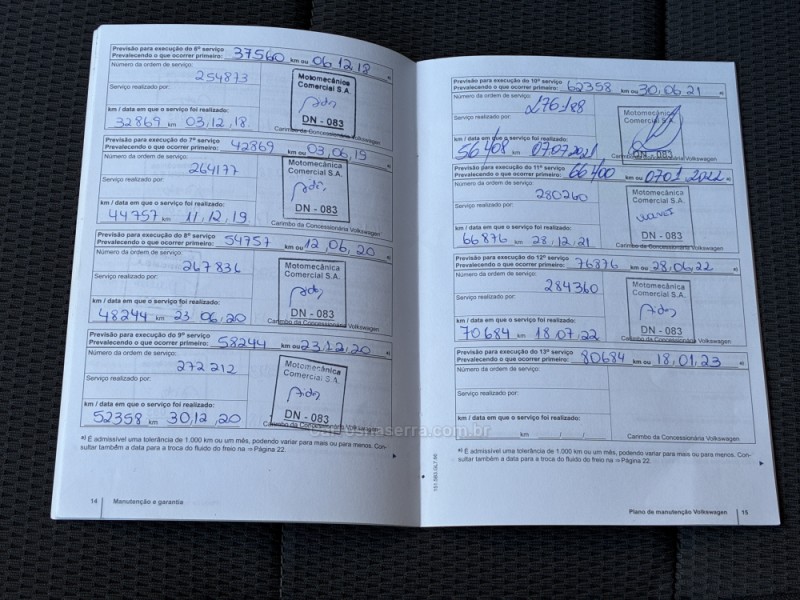 Previsão para execução do 6º serviço
Prevalecendo o que ocorrer primeiro: 37560 km ou 06,12,18 a)
Número da ordem de serviço:
254873
Serviço realizado por:
Motomecânica
Comercial S.A.
DN - 083
km / data em que o serviço foi realizado:
32869 km 03,12,18.
Carimbo da Concessionária Volkswagen
Previsão para execução do 7º serviço
Prevalecendo o que ocorrer primeiro: 42869 km ou 03,06,19 a)
Número da ordem de serviço:
264177
Serviço realizado por:
Motomecânica
Comercial S.A.
DN - 083
km / data em que o serviço foi realizado:
44757 km 11,12,19.
Carimbo da Concessionária Volkswagen
Previsão para execução do 8º serviço
Prevalecendo o que ocorrer primeiro: 54757 km ou 12,06,20 a)
Número da ordem de serviço:
267836
Serviço realizado por:
Motomecânica
Comercial S.A.
DN - 083
km / data em que o serviço foi realizado:
48244 km 23,06,20
Carimbo da Concessionária Volkswagen
Previsão para execução do 9º serviço
Prevalecendo o que ocorrer primeiro: 58244 km ou 23,12,20 a)
Número da ordem de serviço:
272212
Serviço realizado por:
Motomecânica
Comercial S.A.
DN - 083
km / data em que o serviço foi realizado:
52358 km 30,12,20
Carimbo da Concessionária Volkswagen
a) É admissível uma tolerância de 1.000 km ou um mês, podendo variar para mais ou para menos. Con-
sultar também a data para a troca do fluido do freio na ⇒ Página 22.
14 Manutenção e garantia
Previsão para execução do 10º serviço
Prevalecendo o que ocorrer primeiro: 62358 km ou 30,06,21 a)
Número da ordem de serviço:
276188
Serviço realizado por:
Motomecânica
Comercial S.A.
DN - 083
km / data em que o serviço foi realizado:
56408 km 07.07.2021
Carimbo da Concessionária Volkswagen
Previsão para execução do 11º serviço
Prevalecendo o que ocorrer primeiro: 66400 km ou 07.01.2022 a)
Número da ordem de serviço:
280260
Serviço realizado por:
Motomecânica
Comercial S.A.
DN - 083
km / data em que o serviço foi realizado:
66876 km 28,12,21
Carimbo da Concessionária Volkswagen
Previsão para execução do 12º serviço
Prevalecendo o que ocorrer primeiro: 76876 km ou 28,06,22 a)
Número da ordem de serviço:
284360
Serviço realizado por:
Motomecânica
Comercial S.A.
DN - 083
km / data em que o serviço foi realizado:
70684 km 18,07,22
Carimbo da Concessionária Volkswagen
Previsão para execução do 13º serviço
Prevalecendo o que ocorrer primeiro: 80684 km ou 18,01,23 a)
Número da ordem de serviço:
Serviço realizado por:
km / data em que o serviço foi realizado:
km / /
Carimbo da Concessionária Volkswagen
a) É admissível uma tolerância de 1.000 km ou um mês, podendo variar para mais ou para menos. Con-
sultar também a data para a troca do fluido do freio na ⇒ Página 22.
Plano de manutenção Volkswagen 15